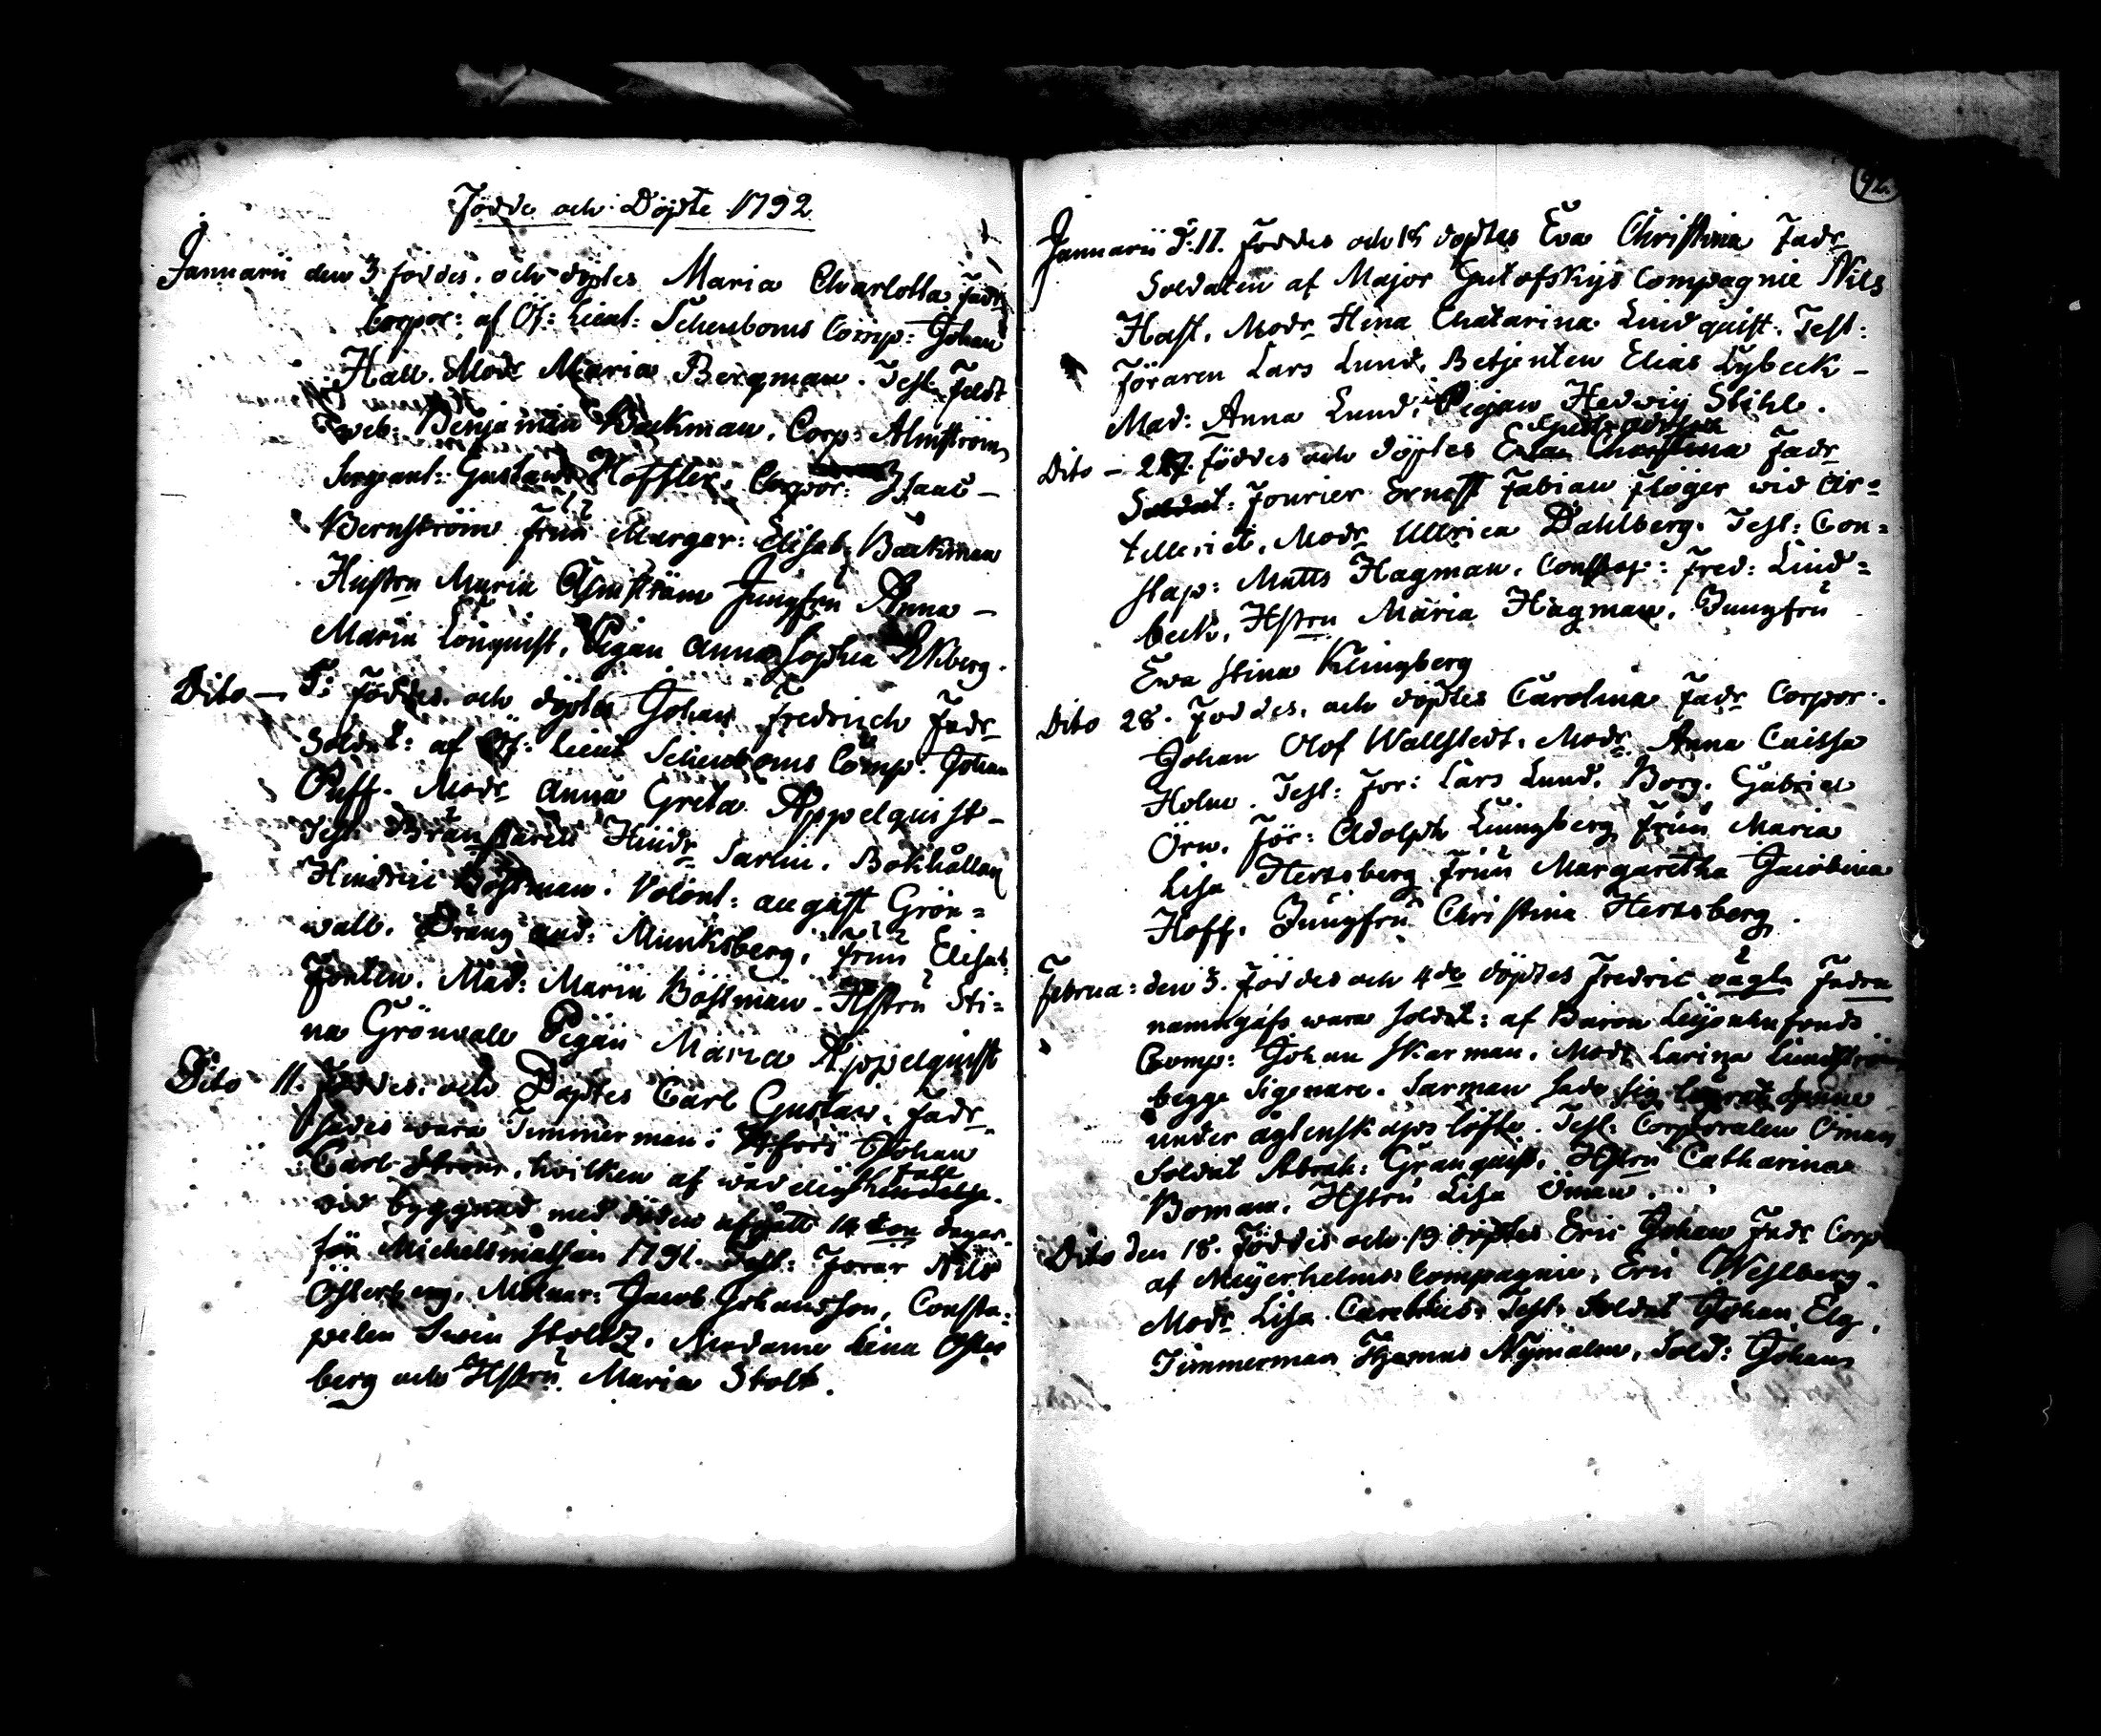 Födde och Döpte 1792
Januarii den 3 föddes. och döptes Maria Charlotta Fadr
Corpor: af Öf: Lieut: Scheuboms Comp: Johan
Hall. Modr Maria Bergman. Test: Feldt
web: Benjamin Backman. Corp: Almström,
Sergeant: Gustaw Hoffler, Corpor: Isaac –
Bernström Fru Margar: Elisab: Backman
Hustru Maria Almström Jungfru Anna –
Maria Lönquist, Pigan Anna Sophia Ekberg.
Dito – 5: Föddes. och döptes Johan Fredrich Fadr
Soldat: af Öf: Lieut Scheuboms Comp: Johan
Puff. Modr Anna Greta Appelquist –
Test: Hindr Sarlin. Bokhållan
Hindric Boßman. Volont: August Grön=
wall. Dräng And: Munksberg. Fru Elisab:
Forten. Mad: Maria Boßman. Hstru Sti=
na Grönvall Pigan Maria Appelquist
Dito 11. Föddes. och Döptes Carl Gustaw. Fadr
sades wara Timmerman: Johan
Carl Ström. hvilken af wådelig händelse
wid byggnad med döden afgått 14 dagar
för Michelsmässan 1791. Test: Forar Nils
Österberg. Jacob Johansson, Consta=
pelen Swen Stoltz. Madame Lena Öster
berg och Hstru Maria Stolt.
92
Januarii d. 17. föddes och 18 döptes Eva Christina Fadr
Soldaten af Major Gutofskys Compagnie Nils
Hast. Modr Hena Chatarina Lindquist. Test:
Föraren Lars Lund, Betjenten Elias Lybeck –
Mad: Anna Lund, Pigan Hedwig Stihle.
Dito – 27. föddes och döptes Christina Fadr
Soldat: Fourier Ernest Fabian Flöger wid Ar=
telleriet. Modr Ullrica Dahlberg. Test: Con=
stap: Matts Hagman. Constap: Fred: Lind=
beck, Hstru Maria Hagman, Jungfru
Ewa Stina Klingberg
Dito 28. Föddes. och döptes Carolina Fadr Corpor.
Johan Olof Wallstedt. Modr Anna Caissa
Holm. Test: For: Lars Lund. Borg. Gabriel
Örn. För: Adolph Liungberg Fru Maria
Lisa Hertsberg Fru Margaretha Jacobina
Hoff. Jungfru Christina Hertsberg.
Februa: den 3. Föddes och 4de döptes Fredric oägta Fadren
namngafs wara Soldat: af Baron Leijonhufvuds
Comp: Johan Skarman. Modr Carina Lundström
begge Sigenare. Sarman hade sig henne
under ägtenskaps löfte. Test: Corporalen Öman
Soldat Abrah: Granquist. Hstru Catharina
Boman. Hstru Lisa Öman.
Dito den 18. Föddes och 19 döptes Eric Johan Fadr Corp
af Meijerhelms Compagnie, Eric Westberg.
Modr Lisa Test: Soldat Johan Elg.
Timmerman Nymalm, Sold: Johan